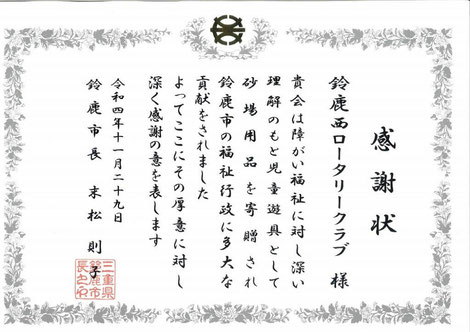 感謝状
鈴鹿西ロータリークラブ 様
貴会は障がい福祉に対し深い
理解のもと児童遊具として
砂場用品を寄贈され
鈴鹿市の福祉行政に多大な
貢献をされました
よってここにその厚意に対し
深く感謝の意を表します
令和四年十一月二十九日
鈴鹿市長 末松 則子
三重県
鈴鹿市
長之印